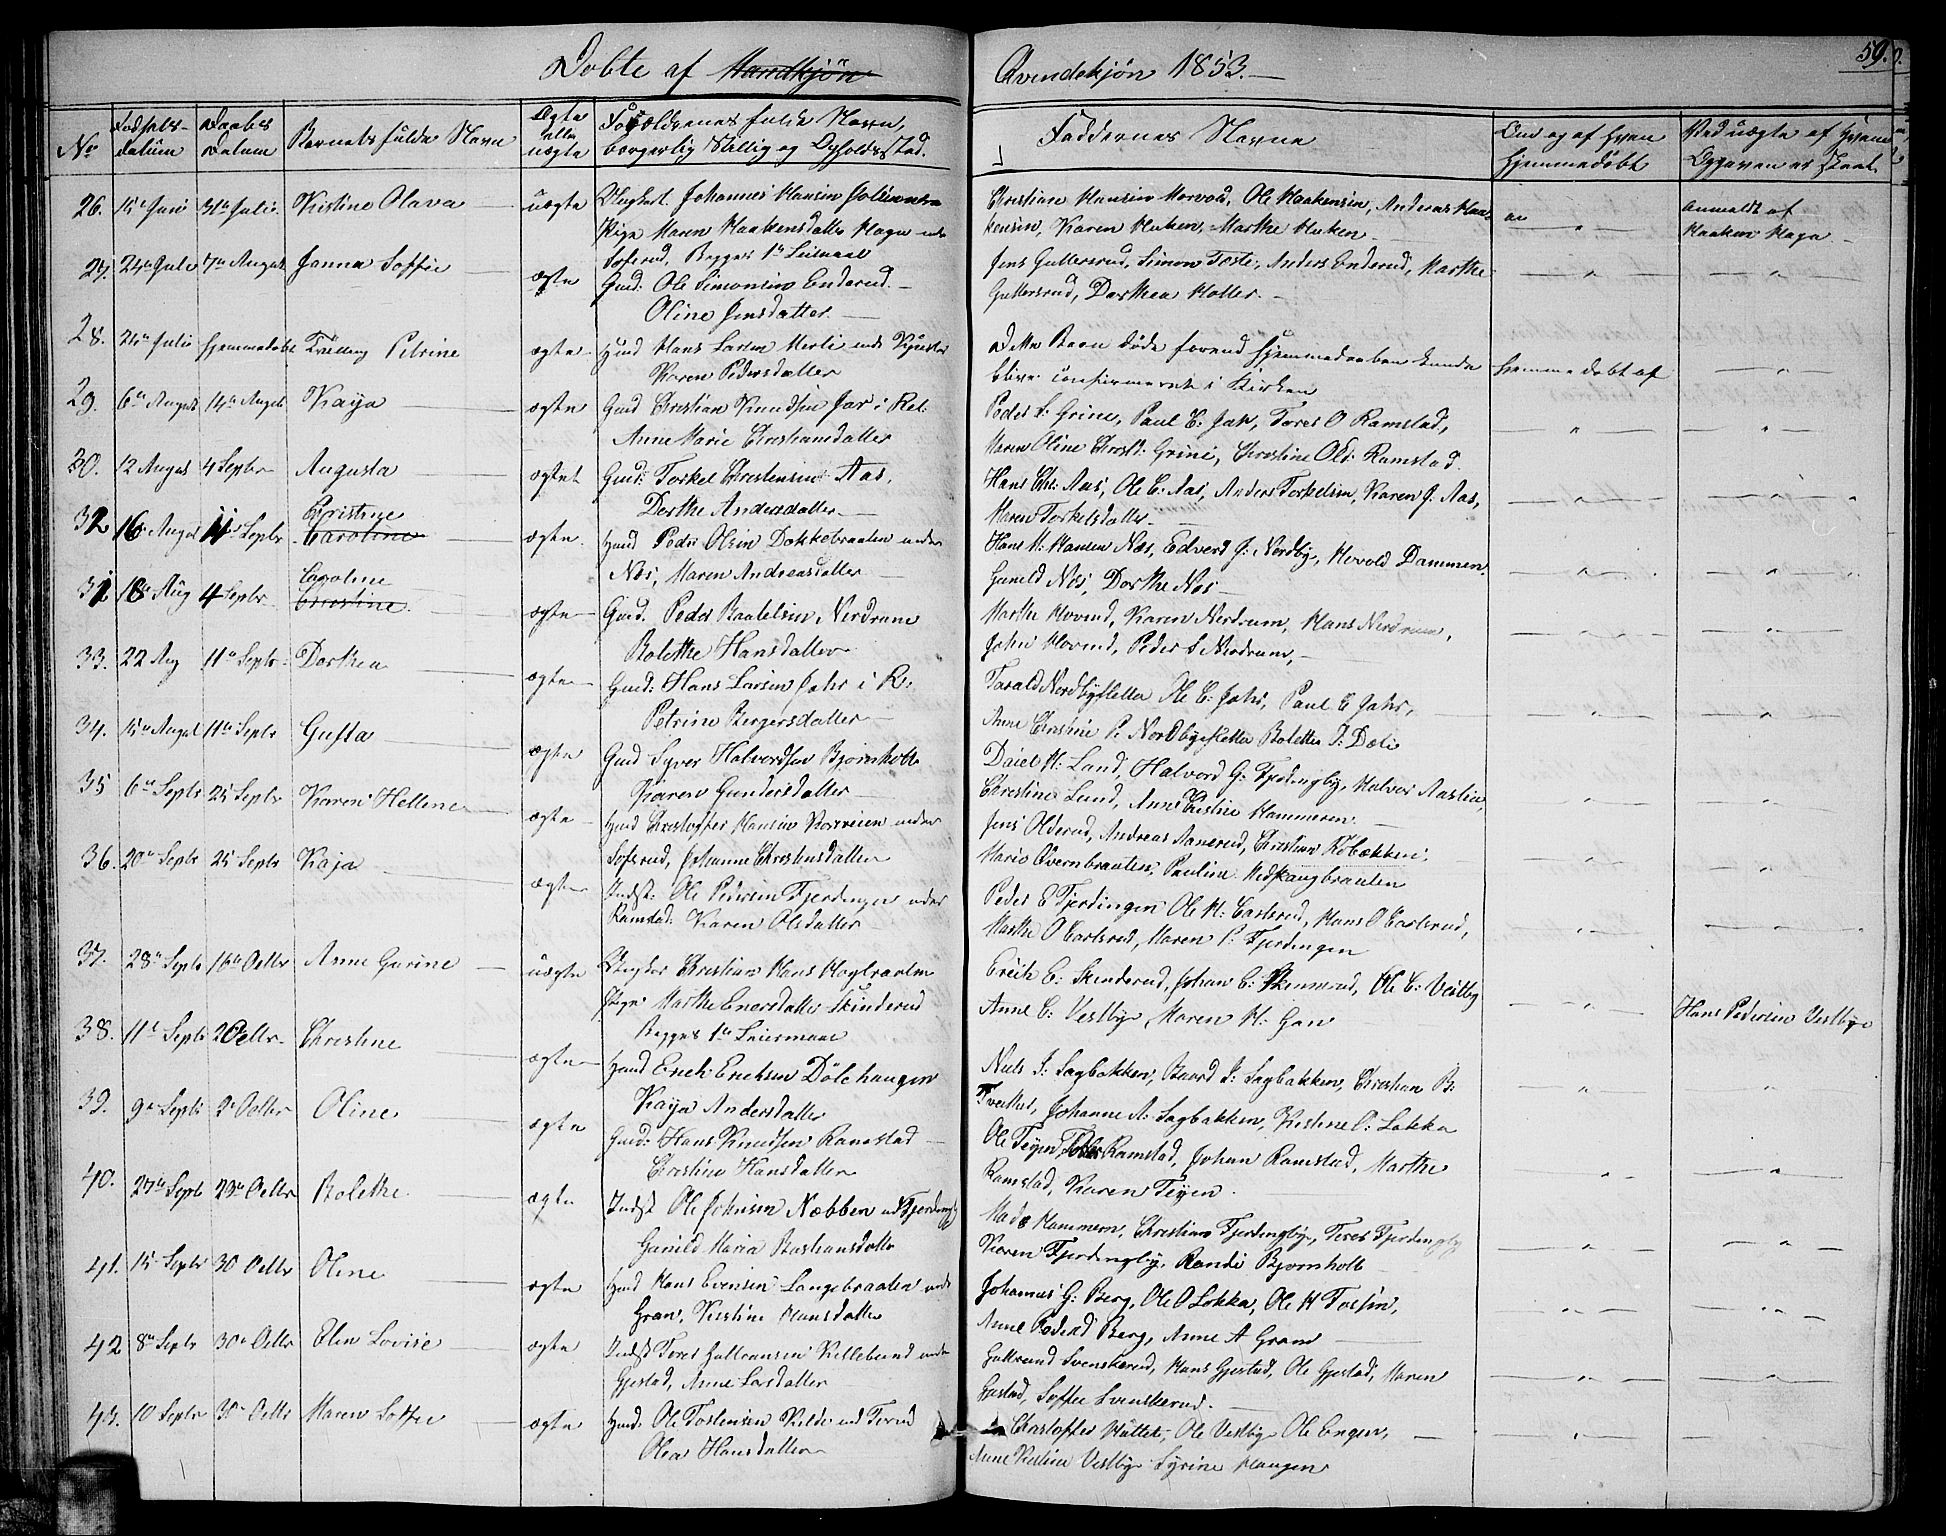 Døbte af Mandkjøn Qvindekjøn 1853.
59.
No
Fødsels-datum
Daabs Datum
Barnets fulde Navn
Ægte eller uægte
Forældrenes fulde Navn, borgerlig Stilling og Opholdssted.
Faddernes Navne
Om og af hvem hjemmedøbt
Ved uægte af hvem Opgaven er skeet
26. 15de Juni 31te Juli Kristine Olava uægte Ungkarl Johannes Hansen
Pige Maren Haakensdatter Haga under
Soferud, Begges 1te Leiermaal
Christian Hansen Morvold, Ole Haakensen, Anders Haa-
kensen, Karen Haken, Marthe Haken
Anmeldt af
Haaken Haga
27. 24de Juli 7de August Janna Soffie ægte Gmd: Ole Simonsen Enderud
Oline Jensdatter
Jens Gullersrud, Simon Toste, Anders Enderud, Marthe
Gullersrud, Dorthea Holter.
28. 24de Julii hjemmedøbt Trilling Petrine ægte Hmd Hans Larsen Merli under
Karen Pedersdatter
dette Barn døde forend Hjemmedaaben kunde
blive confirmeret i Kirken
hjemmedøbt af
29. 6te August 14de August Kaya ægte Gmd Christian Knudsen Jar i Rel:
Anne Marie Christiansdatter
Peder L: Grine, Paul E: Jak, Tores O Ramstad,
Maren Oline Christ: Grini, Christine Ols: Ramstad.
30. 12 August 4 Septbr Augusta ægte Gmd: Torkel Christensen Aas,
Dorthe Andersdatter
Hans Chr: Aas, Ole C: Aas, Anders Torkelsen, Karen J. Aas,
Maren Torkelsdatter
32 16 August 11 Septbr Cristine
Caroline ægte Hmd Peder Olsen Dokkebraaten under
Næs, Maren Andreasdatter
Hans M: Hansen Næs, Edverd J: Nordby, Hovold Dammen
Gunild Næs, Dorthe Næs
31 18 Aug 4 Septbr Caroline
Christine ægte Gmd. Peder Baalelsen Nerdrum
Bolethe Hansdatter
Marthe Hovend, Karen Nerdrum, Hans Nerdrum,
John Hovind, Peder S Nerdrum,
33. 22 Aug 11te Septbr Dorthea ægte Gmd: Hans Larsen Jahr i R:
Petrine Bergersdatter
Tarald Nordbysletta Ole E: Jahr, Paul E Jahr,
Anne Christine P. Nordbysletta Bolette P: Dæli
34. 15de August 11te Septbr Gusta ægte Gmd Syver Halvordsen Bjørnholt
Karen Gundersdatter
Daniel H: Lund, Halvord G: Fjerdingby, Halvor Aaslien,
Christine Lund, Anne Cristine Hammeren.
35 6te Septbr 25 Septbr Karen Hellene ægte Hmd Christoffer Hansen Korsveien under
Soferud, Johanne Christensdatter
Jens Olderud, Andreas Aanerud, Christian Købækken,
Marie Overnbraaten, Pauline Nedskaugbraaten
36. 20de Septbr 25 Septbr Kaja ægte Indst: Ole Pedersen Fjerdingen under
Ramstad: Karen Olsdatter
Peder E Fjerdingen Ole H: Carlsrud, Hans O Carlsrud,
Marthe O Carlsrud, Maren P: Fjerdingen
37. 28de Septbr 16de Octbr Anne Gurine uægte Ungkar Christian Hans Hagbraaten
Pige Marthe Enersdatter Skinderud
Begges 1te Leiermaal
Erich E: Skinderud, Johan E: Skinnerud, Ole C: Vestby
Anne C: Vestbye, Maren H: Gan
Hans Pedersen Vestbye
38. 11te Septbr 2 Octbr Christine ægte Hmd Erich Erichsen Dølehaugen
Kaya Andersdatter
Niels J: Sagbakken, Baard J: Sagbakken, Christian B:
Tveitet, Johanne A: Sagbakken, Kistine P: Løkka
39. 9de Septbr 2de Octbr Oline ægte Gmd: Hans Knudsen Ramstad
Christine Hansdatter
Ole Teyen, Tores Ramstad, Johan Ramstad, Marthe
Ramstad, Karen Teyen.
40. 27de Septb 23de Octbr Bolethe ægte Indst Ole Johnsen Næbben ud Fjerdingby
Gunild Maria Bastiansdatter
Mads Hammern, Christian Fjerdingby, Tores Fjerdingby
Karen Fjerdingby, Randi Bjørnholt
41. 15 Septbr 30 Octbr Oline ægte Hmd Hans Evensen Langebraaten under
Gran, Kirstine Hansdatter
Johannes G: Berg, Ole O Løkka, Ole H Tossen,
Anne Pedersd Berg, Anne A Gram
42 8de Septbr 30te Octbr Elen Lovise ægte Indst Tores Gulbransen Killebund under
Gjestad, Anne Larsdatter
Gulbrand Svenskerud, Hans Gjestad, Ole Gjestad, Maren
Gjestad, Soffie Svenskerud.
43. 10 Septbr 30te Octbr Maren Soffie ægte Hmd. Ole Tostensen Kilde ud Terud
Olea Hansdatter
Christoffer Huttet, Ole Vestby Ole Engen,
Anne Kistine Vestbye Syrine Haugen